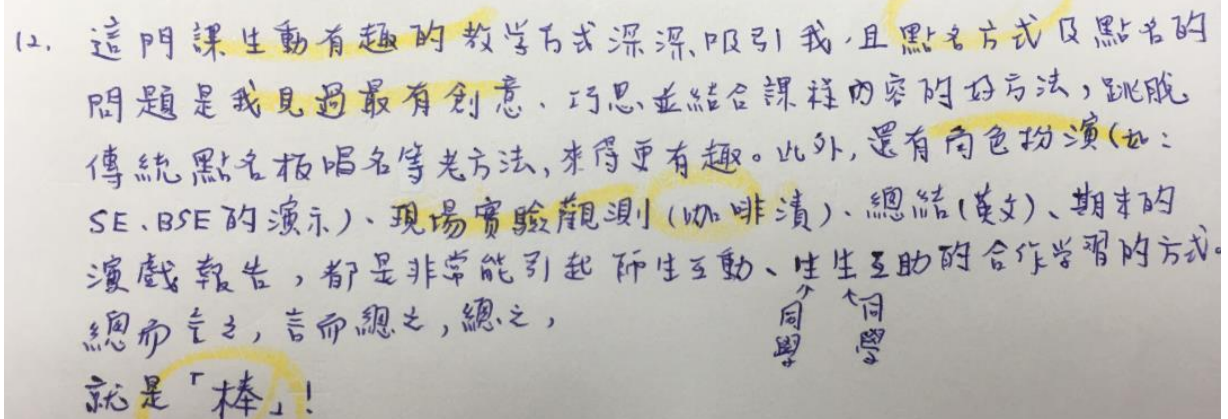 12. 這門課生動有趣的教学方式深深吸引我,且點名方式及點名的
問題是我見過最有創意、巧思並結合課程內容的好方法,跳脫
傳統點名板唱名等老方法,來得更有趣。此外,還有角色扮演(如:
SE、BSE的演示)、現場實驗觀測(咖啡漬)、總結(英文)、期末的
演戲報告,都是非常能引起師生互動、生生互助的合作学習的方式。
同學 同學
總而言之,言而總之,總之,
就是「棒」!